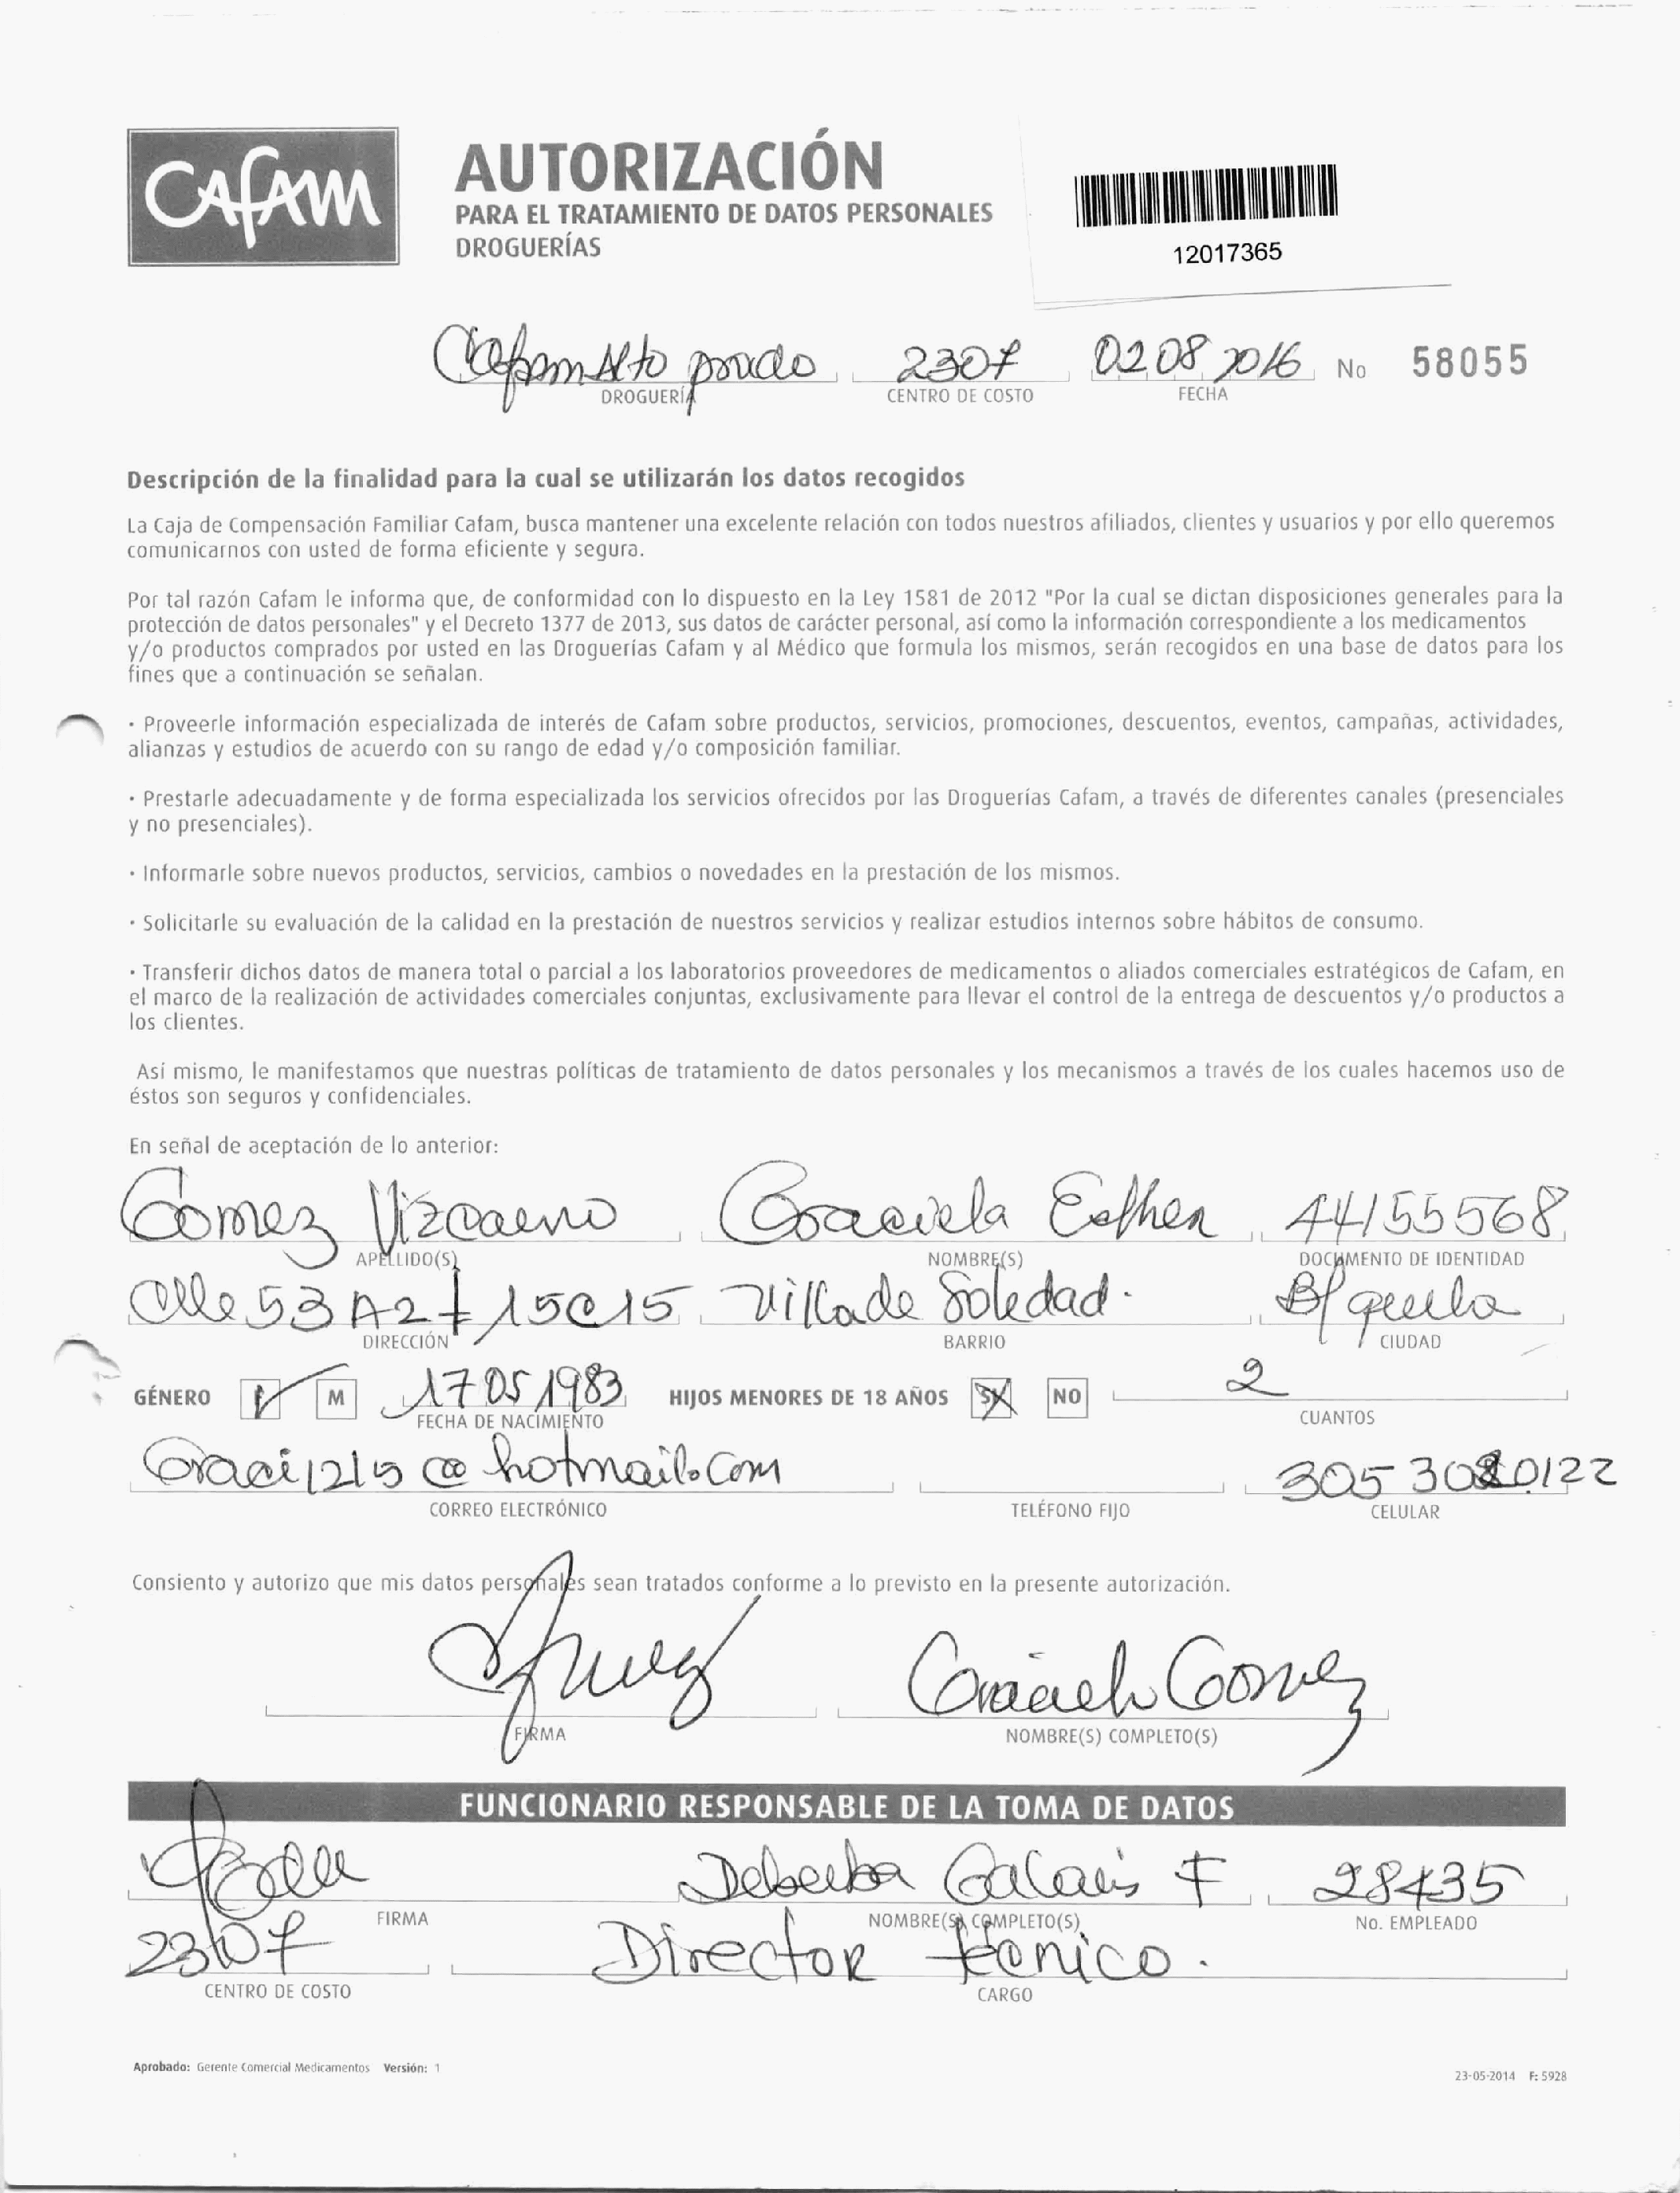 CAFAM
AUTORIZACIÓN
PARA EL TRATAMIENTO DE DATOS PERSONALES
DROGUERÍAS
12017365
Cafam Alto prado 2307 02 08 2016 No 58055
DROGUERÍA CENTRO DE COSTO FECHA
Descripción de la finalidad para la cual se utilizarán los datos recogidos
La Caja de Compensación Familiar Cafam, busca mantener una excelente relación con todos nuestros afiliados, clientes y usuarios y por ello queremos
comunicarnos con usted de forma eficiente y segura.
Por tal razón Cafam le informa que, de conformidad con lo dispuesto en la Ley 1581 de 2012 "Por la cual se dictan disposiciones generales para la
protección de datos personales" y el Decreto 1377 de 2013, sus datos de carácter personal, así como la información correspondiente a los medicamentos
y/o productos comprados por usted en las Droguerías Cafam y al Médico que formula los mismos, serán recogidos en una base de datos para los
fines que a continuación se señalan.
· Proveerle información especializada de interés de Cafam sobre productos, servicios, promociones, descuentos, eventos, campañas, actividades,
alianzas y estudios de acuerdo con su rango de edad y/o composición familiar.
· Prestarle adecuadamente y de forma especializada los servicios ofrecidos por las Droguerías Cafam, a través de diferentes canales (presenciales
y no presenciales).
· Informarle sobre nuevos productos, servicios, cambios o novedades en la prestación de los mismos.
· Solicitarle su evaluación de la calidad en la prestación de nuestros servicios y realizar estudios internos sobre hábitos de consumo.
· Transferir dichos datos de manera total o parcial a los laboratorios proveedores de medicamentos o aliados comerciales estratégicos de Cafam, en
el marco de la realización de actividades comerciales conjuntas, exclusivamente para llevar el control de la entrega de descuentos y/o productos a
los clientes.
Así mismo, le manifestamos que nuestras políticas de tratamiento de datos personales y los mecanismos a través de los cuales hacemos uso de
éstos son seguros y confidenciales.
En señal de aceptación de lo anterior:
Gomez Vizcaeno Graciela Esther 44155568
APELLIDO(S) NOMBRE(S) DOCUMENTO DE IDENTIDAD
Calle 53 A2 # 15C15 Villa de Soledad. B/quilla
DIRECCIÓN BARRIO CIUDAD
GÉNERO F M 17 05 1983 HIJOS MENORES DE 18 AÑOS SI NO 2
FECHA DE NACIMIENTO CUANTOS
Graci1215@hotmail.com 305 3080122
CORREO ELECTRÓNICO TELÉFONO FIJO CELULAR
Consiento y autorizo que mis datos personales sean tratados conforme a lo previsto en la presente autorización.
Graciela Gomez
FIRMA NOMBRE(S) COMPLETO(S)
FUNCIONARIO RESPONSABLE DE LA TOMA DE DATOS
28435
FIRMA NOMBRE(S) COMPLETO(S) No. EMPLEADO
2307 Director técnico.
CENTRO DE COSTO CARGO
Aprobado: Gerente Comercial Medicamentos Versión: 1
23-05-2014 F: 5928